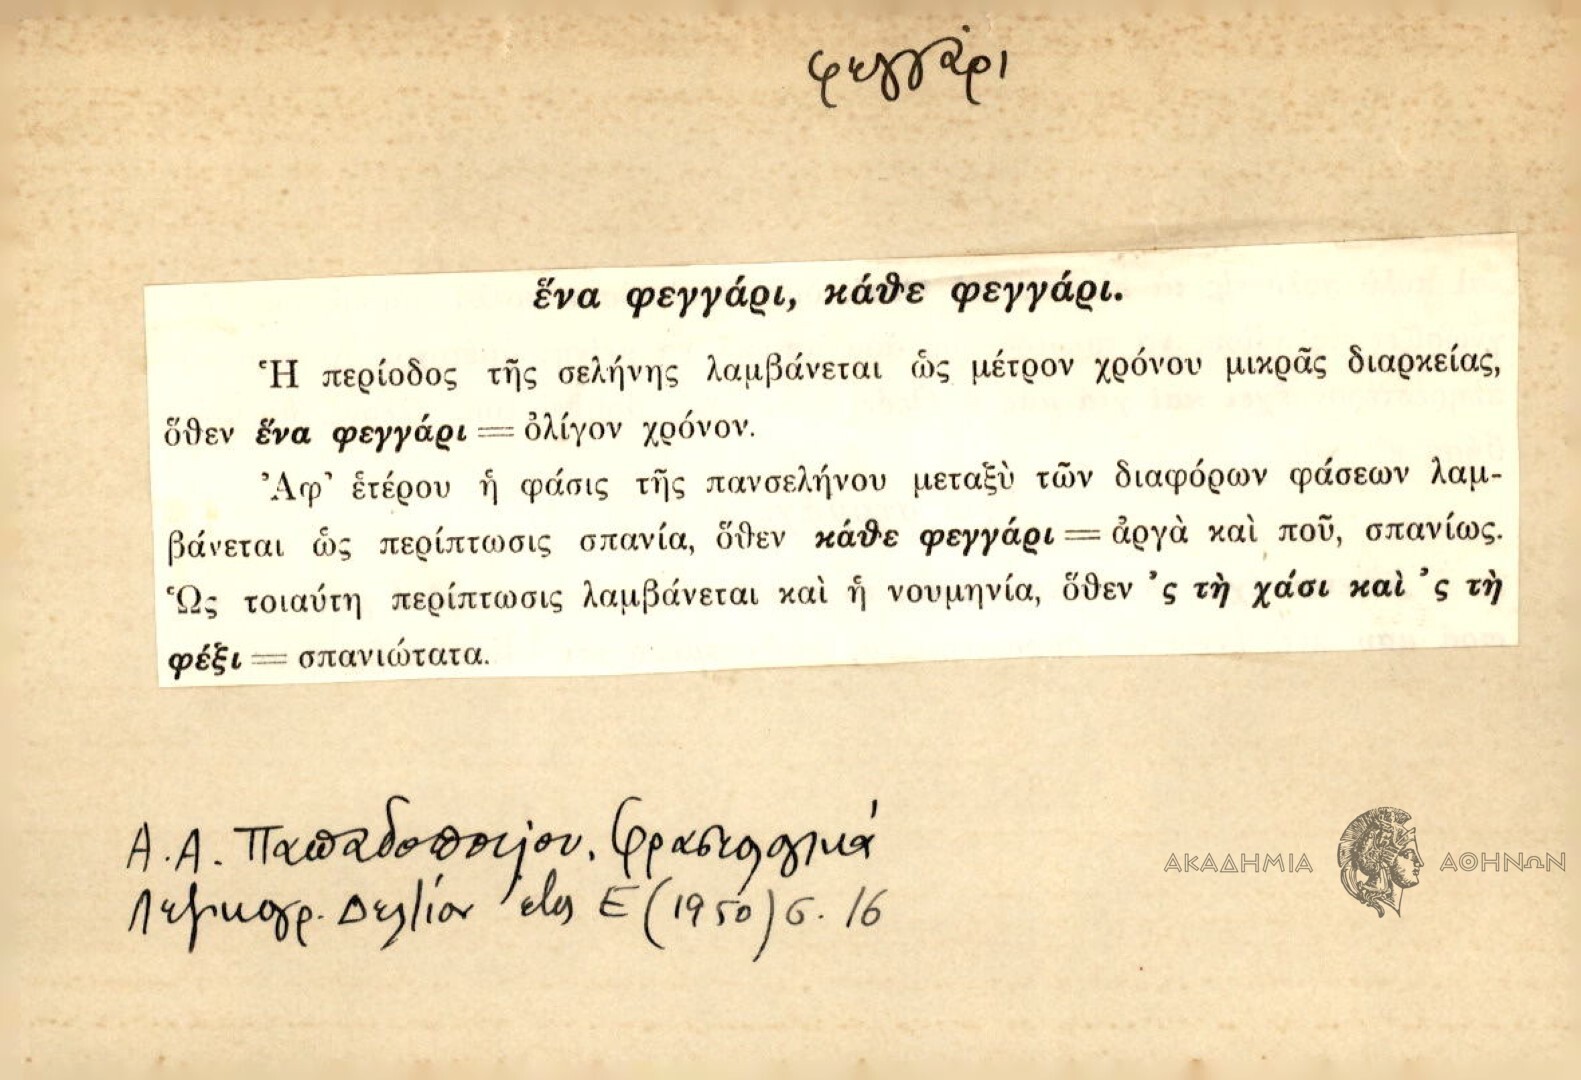 φεγγάρι
ἕνα φεγγάρι, κάθε φεγγάρι.
Ἡ περίοδος τῆς σελήνης λαμβάνεται ὡς μέτρον χρόνου μικρᾶς διαρκείας,
ὅθεν ἕνα φεγγάρι = ὀλίγον χρόνον.
Ἀφ' ἑτέρου ἡ φάσις τῆς πανσελήνου μεταξὺ τῶν διαφόρων φάσεων λαμ-
βάνεται ὡς περίπτωσις σπανία, ὅθεν κάθε φεγγάρι = ἀργὰ καὶ ποῦ, σπανίως.
Ὡς τοιαύτη περίπτωσις λαμβάνεται καὶ ἡ νουμηνία, ὅθεν 'ς τὴ χάσι καὶ 'ς τὴ
φέξι = σπανιώτατα.
Α. Α. Παπαδοπούλου. Φρασεολογικά
Λεξικογρ. Δελτίον ἔτος Ε (1950) σ. 16
ΑΚΑΔΗΜΙΑ ΑΘΗΝΩΝ